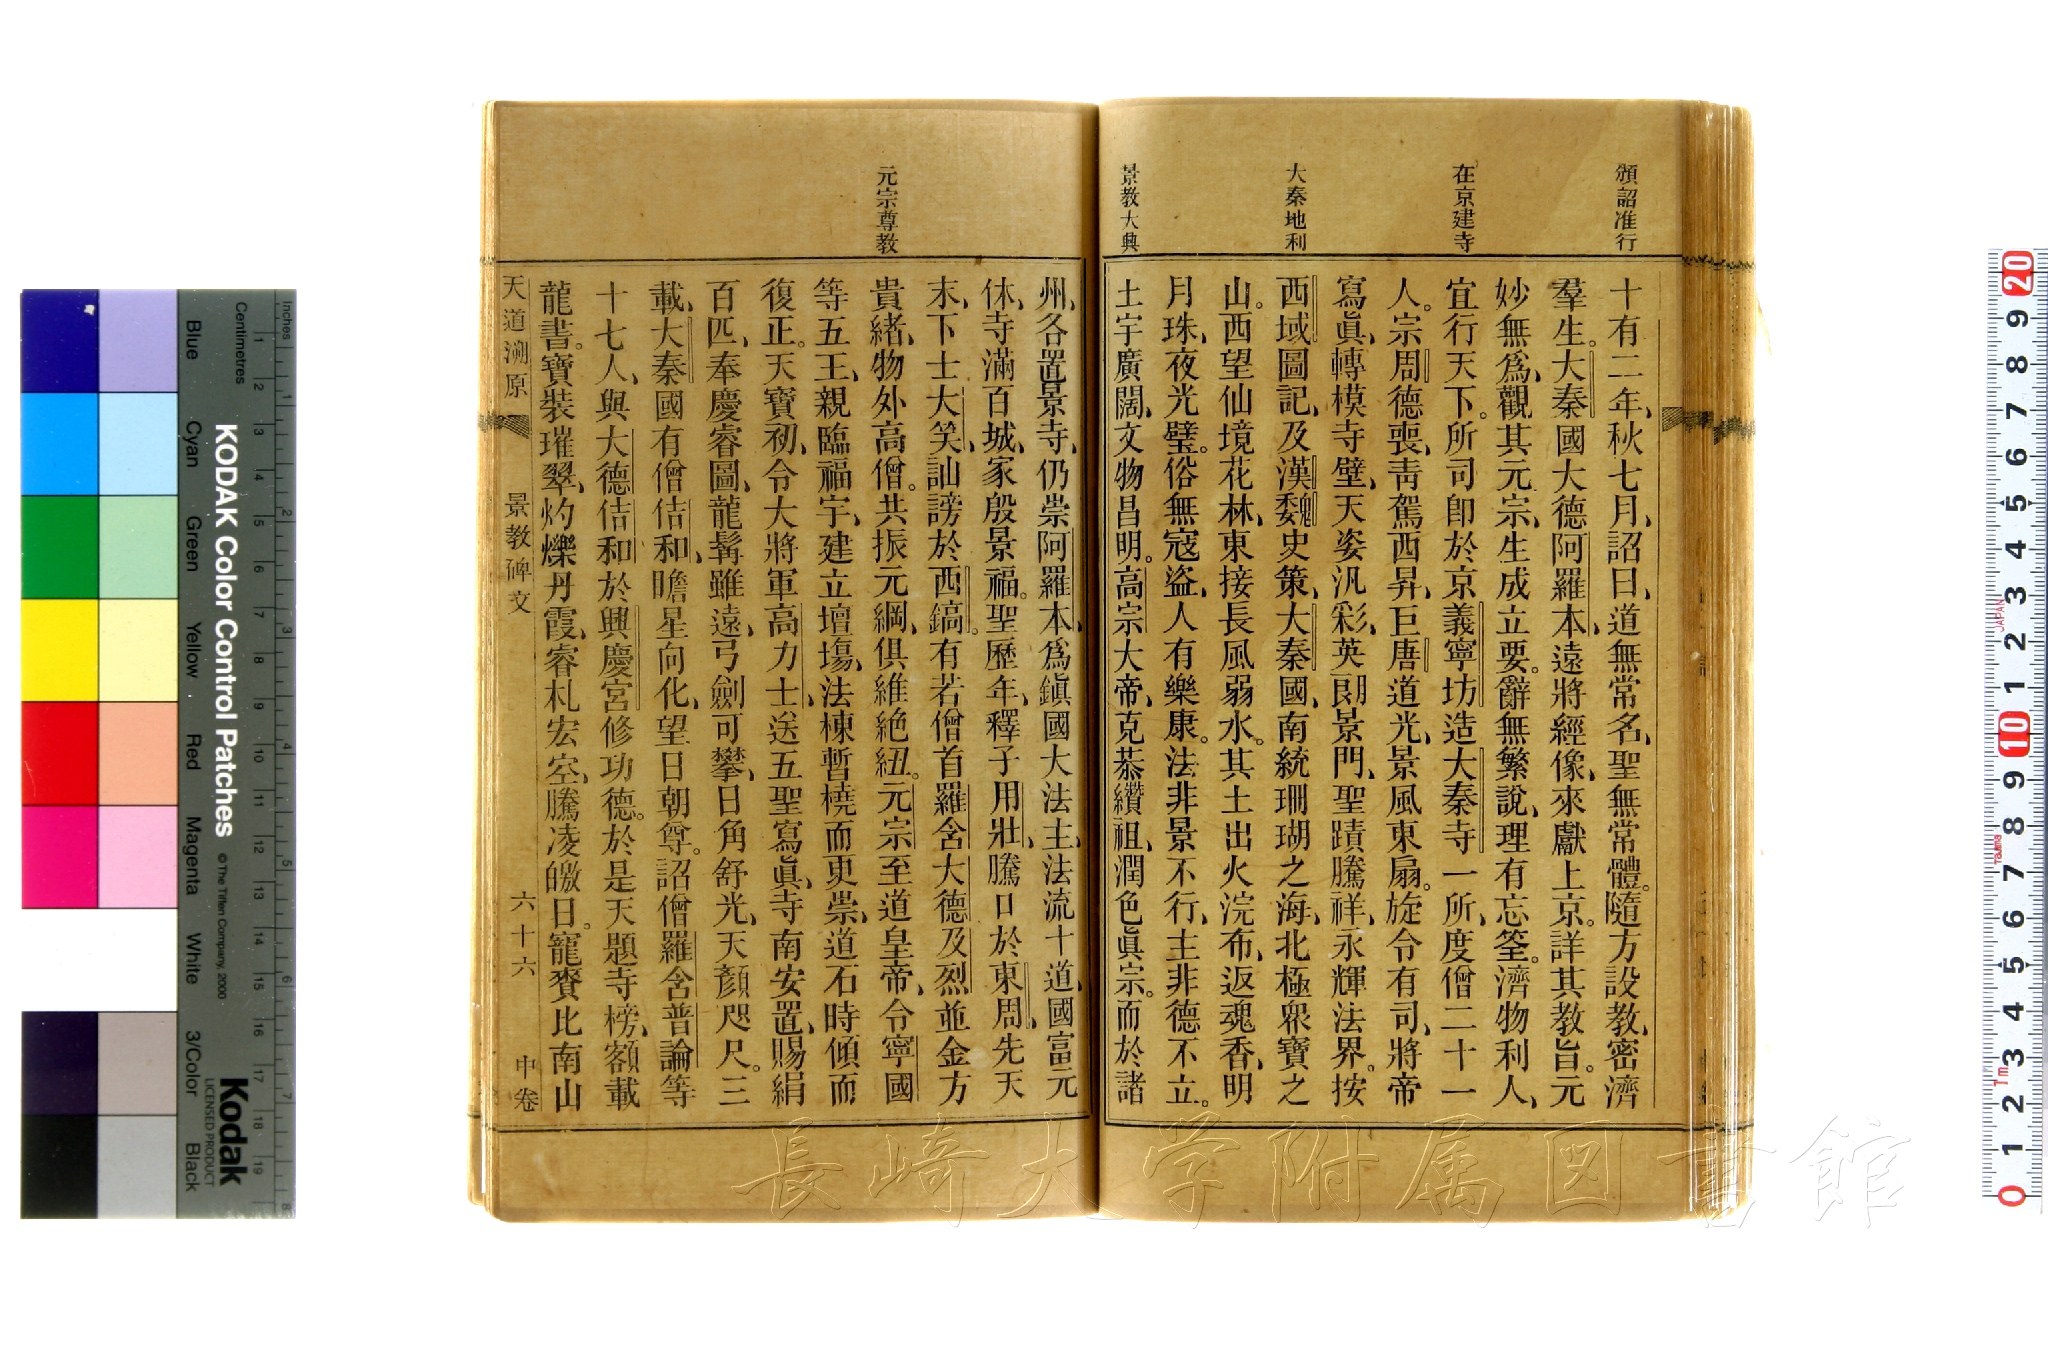 頒詔准行
在京建寺
大秦地利
景教大典
十有二年、秋七月、詔曰、道無常名、聖無常體。隨方設教、密濟
羣生。大秦國大德阿羅本、遠將經像、來獻上京。詳其教旨。元
妙無爲、觀其元宗、生成立要。辭無繁說、理有忘筌。濟物利人、
宜行天下。所司卽於京義寧坊造大秦寺一所、度僧二十一
人。宗周德喪、靑駕西昇、巨唐道光、景風東扇。旋令有司、將帝
寫眞、轉模寺壁、天姿汎彩、英朗景門、聖蹟騰祥、永輝法界。按
西域圖記、及漢魏史策、大秦國、南統珊瑚之海、北極眾寶之
山。西望仙境花林、東接長風弱水。其土出火浣布、返魂香、明
月珠、夜光璧。俗無寇盜、人有樂康。法非景不行、主非德不立。
土宇廣闊、文物昌明。高宗大帝、克恭纘祖、潤色眞宗。而於諸
元宗尊教
州、各置景寺、仍崇阿羅本、爲鎭國大法主、法流十道、國富元
休、寺滿百城、家殷景福。聖歷年、釋子用壯、騰口於東周。先天
末、下士大笑、訕謗於西鎬。有若僧首羅含大德及烈並金方
貴緒、物外高僧。共振元綱、俱維絶紐。元宗至道皇帝、令寧國
等五王、親臨福宇、建立壇場、法棟暫橈而更崇、道石時傾而
復正。天寶初、令大將軍高力士、送五聖寫眞、寺南安置、賜絹
百匹、奉慶睿圖、龍髯雖遠、弓劍可攀、日角舒光、天顏咫尺。三
載、大秦國有僧佶和、瞻星向化、望日朝尊。詔僧羅含普論等
十七人、與大德佶和於興慶宮修功德。於是天題寺榜、額載
龍書。寶裝璀翠、灼爍丹霞、睿札宏空、騰凌皦日。寵賚比南山
天道溯原 景教碑文 六十六 中卷
KODAK Color Control Patches
© The Tiffen Company, 2000
Kodak
LICENSED PRODUCT
Inches
Centimetres
Blue
Cyan
Green
Yellow
Red
Magenta
White
3/Color
Black
長崎大学附属図書館